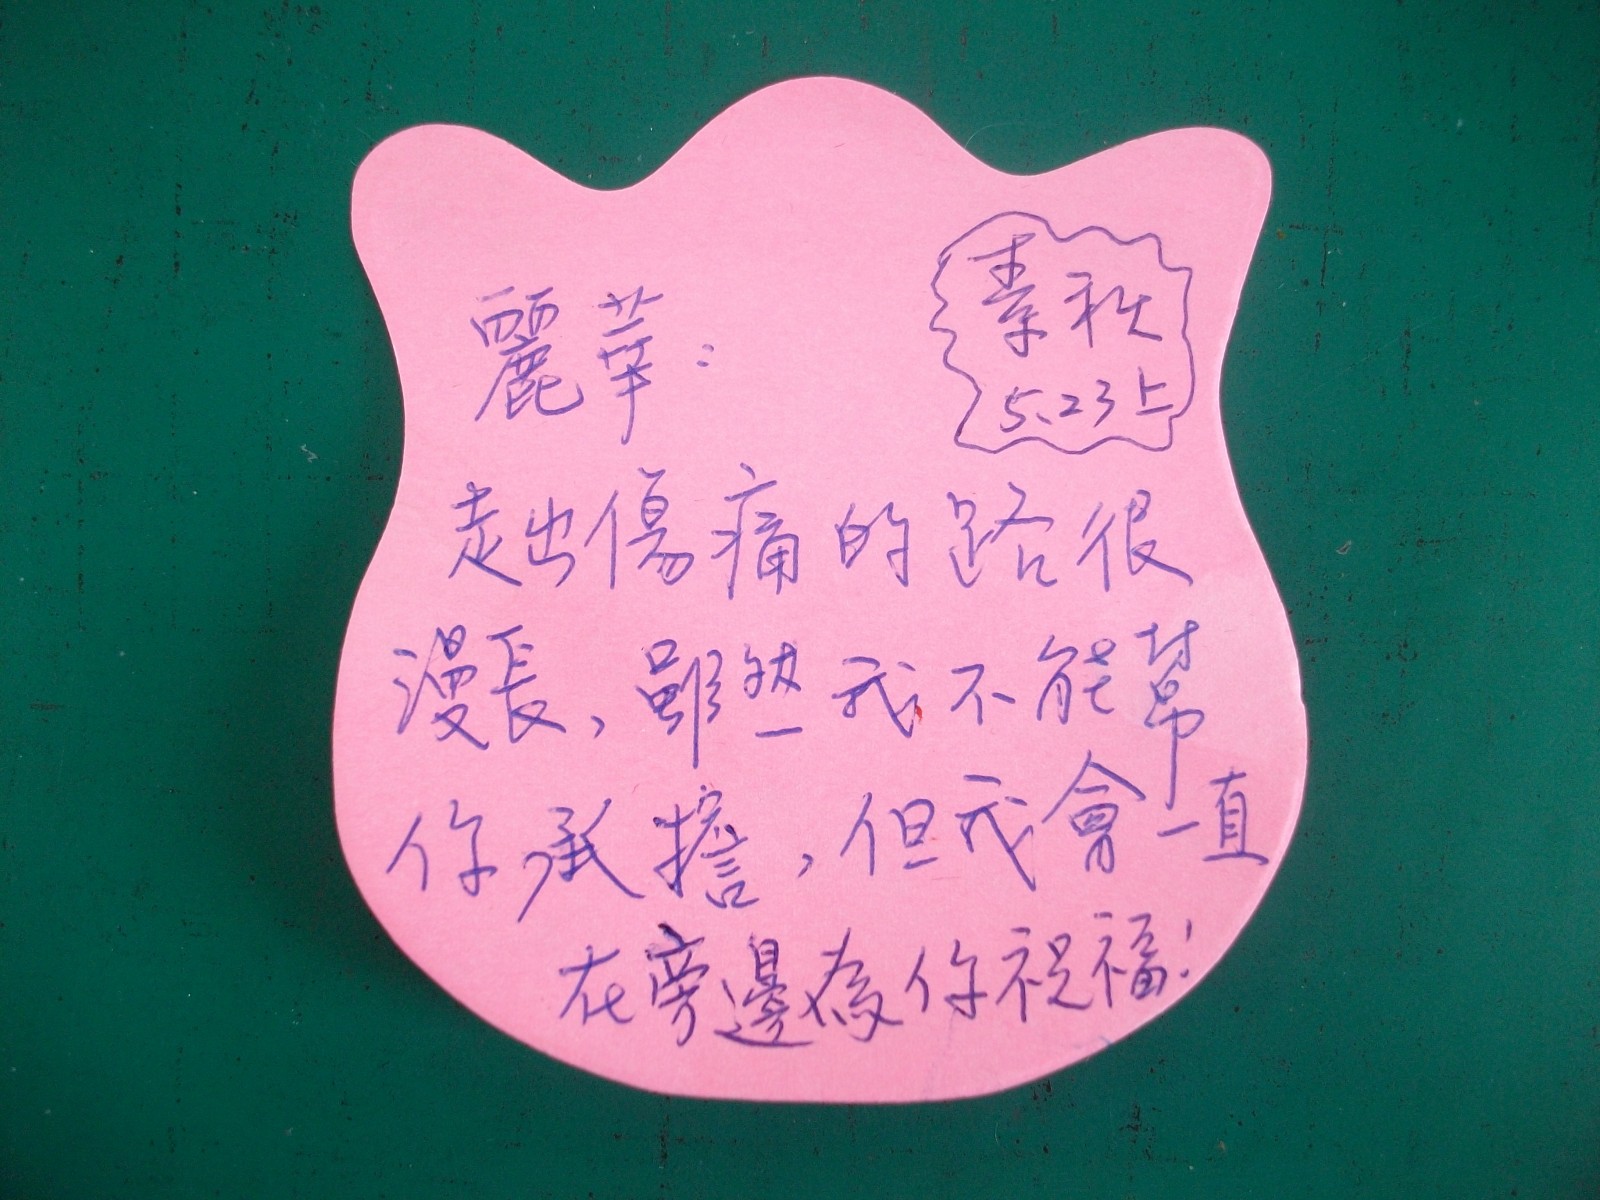 麗華：
素秋
5.23上
走出傷痛的路很
漫長，雖然我不能幫
你承擔，但我會一直
在旁邊為你祝福！